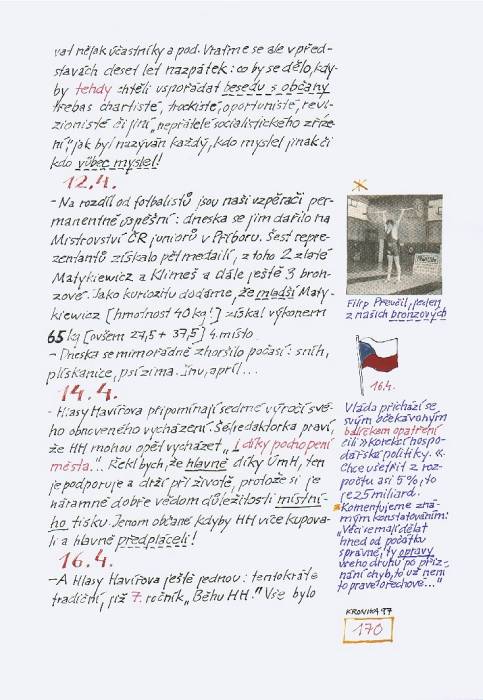 vat nějak účastníky a pod. Vraťme se ale v před-
stavách deset let nazpátek: co by se dělo, kdy-
by tehdy chtěli uspořádat besedu s občany
třebas chartisté, trockisté, oportunisté, revi-
zionisté či jiní „nepřátelé socialistického zříze-
ní“, jak byl nazýván každý, kdo myslel jinak či
kdo vůbec myslel!
12.4.
- Na rozdíl od fotbalistů jsou naši vzpěrači per-
manentně úspěšní: dneska se jim dařilo na
Mistrovství ČR juniorů v Příboru. Šest repre-
zentantů získalo pět medailí, z toho 2 zlaté
Matykiewicz a Klimeš a dále ještě 3 bron-
zové. Jako kuriozitu dodáme, že mladší Maty-
kiewicz [hmotnost 40 kg!] získal výkonem
65 kg [ovšem 27,5 + 37,5] 4. místo.
- Dneska se mimořádně zhoršilo počasí: sníh,
plískanice, psí zima. Inu, apríl...
14.4.
- Hlasy Havířova připomínají sedmé výročí své-
ho obnoveného vycházení. Šéfredaktorka praví,
že HH mohou opět vycházet „i díky pochopení
města...“ Řekl bych, že hlavně díky ÚmH, ten
je podporuje a drží při životě, protože si je
náramně dobře vědom důležitosti místní-
ho tisku. Jenom občané kdyby HH více kupova-
li a hlavně předpláceli!
16.4.
- A Hlasy Havířova ještě jednou: tentokráte
tradiční, již 7. ročník „Běhu HH.“ Vše bylo
Filip Preučil, jeden
z našich bronzových
16.4.
Vláda přichází se
svým očekávaným
balíčkem opatření
čili »korekcí hospo-
dářské politiky.«
Chce ušetřit z roz-
počtu asi 5%, to
je 25 miliard.
Komentujeme zná-
mým konstatováním:
„Věci se mají dělat
hned od počátku
správně, ty opravy
všeho druhu po přiz-
nání chyb, to už není
to pravé ořechové...“
KRONIKA 97
170